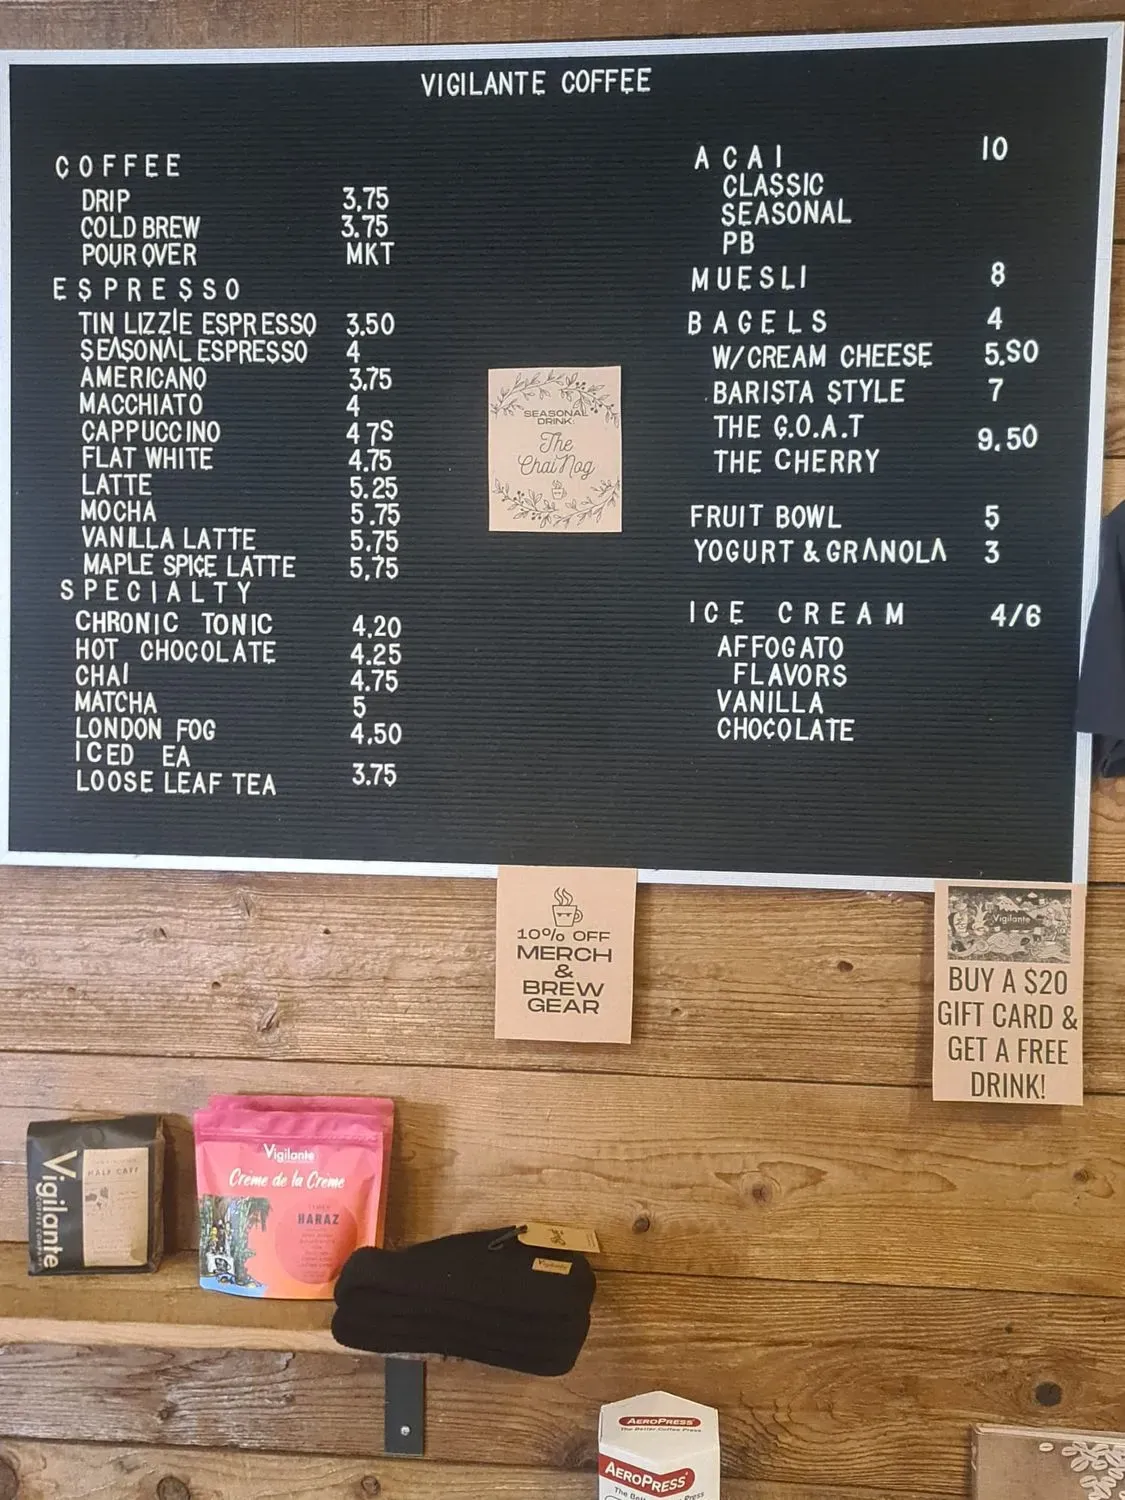 VIGILANTE COFFEE
COFFEE
DRIP 3,75
COLD BREW 3.75
POUR OVER MKT
ESPRESSO
TIN LIZZIE ESPRESSO 3.50
SEASONAL ESPRESSO 4
AMERICANO 3.75
MACCHIATO 4
CAPPUCCINO 4 7S
FLAT WHITE 4.75
LATTE 5.25
MOCHA 5.75
VANILLA LATTE 5,75
MAPLE SPICE LATTE 5,75
SPECIALTY
CHRONIC TONIC 4,20
HOT CHOCOLATE 4.25
CHAI 4.75
MATCHA 5
LONDON FOG 4,50
ICED EA
LOOSE LEAF TEA 3.75
SEASONAL
DRINK:
The
Chai Nog
ACAI 10
CLASSIC
SEASONAL
PB
MUESLI 8
BAGELS 4
W/CREAM CHEESE 5.SO
BARISTA STYLE 7
THE G.O.A.T
9.50
THE CHERRY
FRUIT BOWL 5
YOGURT & GRANOLA 3
ICE CREAM 4/6
AFFOGATO
FLAVORS
VANILLA
CHOCOLATE
10% OFF
MERCH
&
BREW
GEAR
Vigilante
BUY A $20
GIFT CARD &
GET A FREE
DRINK!
Vigilante
COFFEE COMPANY
HALF CAFF
Vigilante
Crème de la Crème
HARAZ
Vigilante
AEROPRESS
The Better Coffee Press
AEROPRESS
The Bet Press